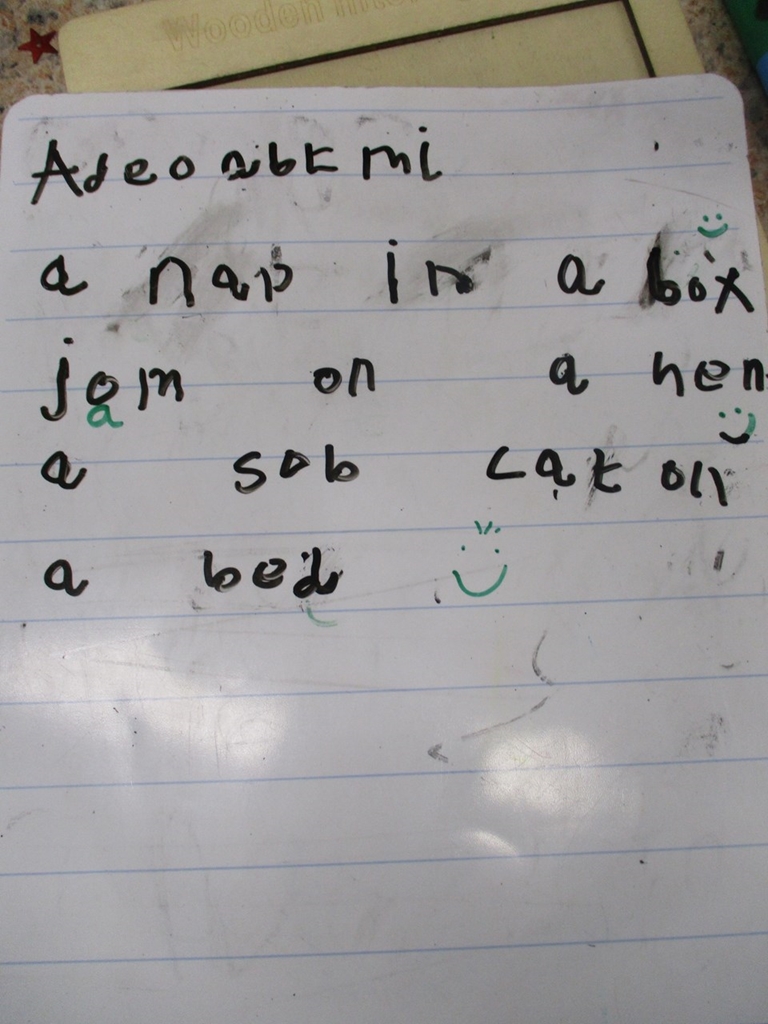 Wooden
Adeo abt mi
a nap in a box
jom on a hen
a
a sob cat on
a bed